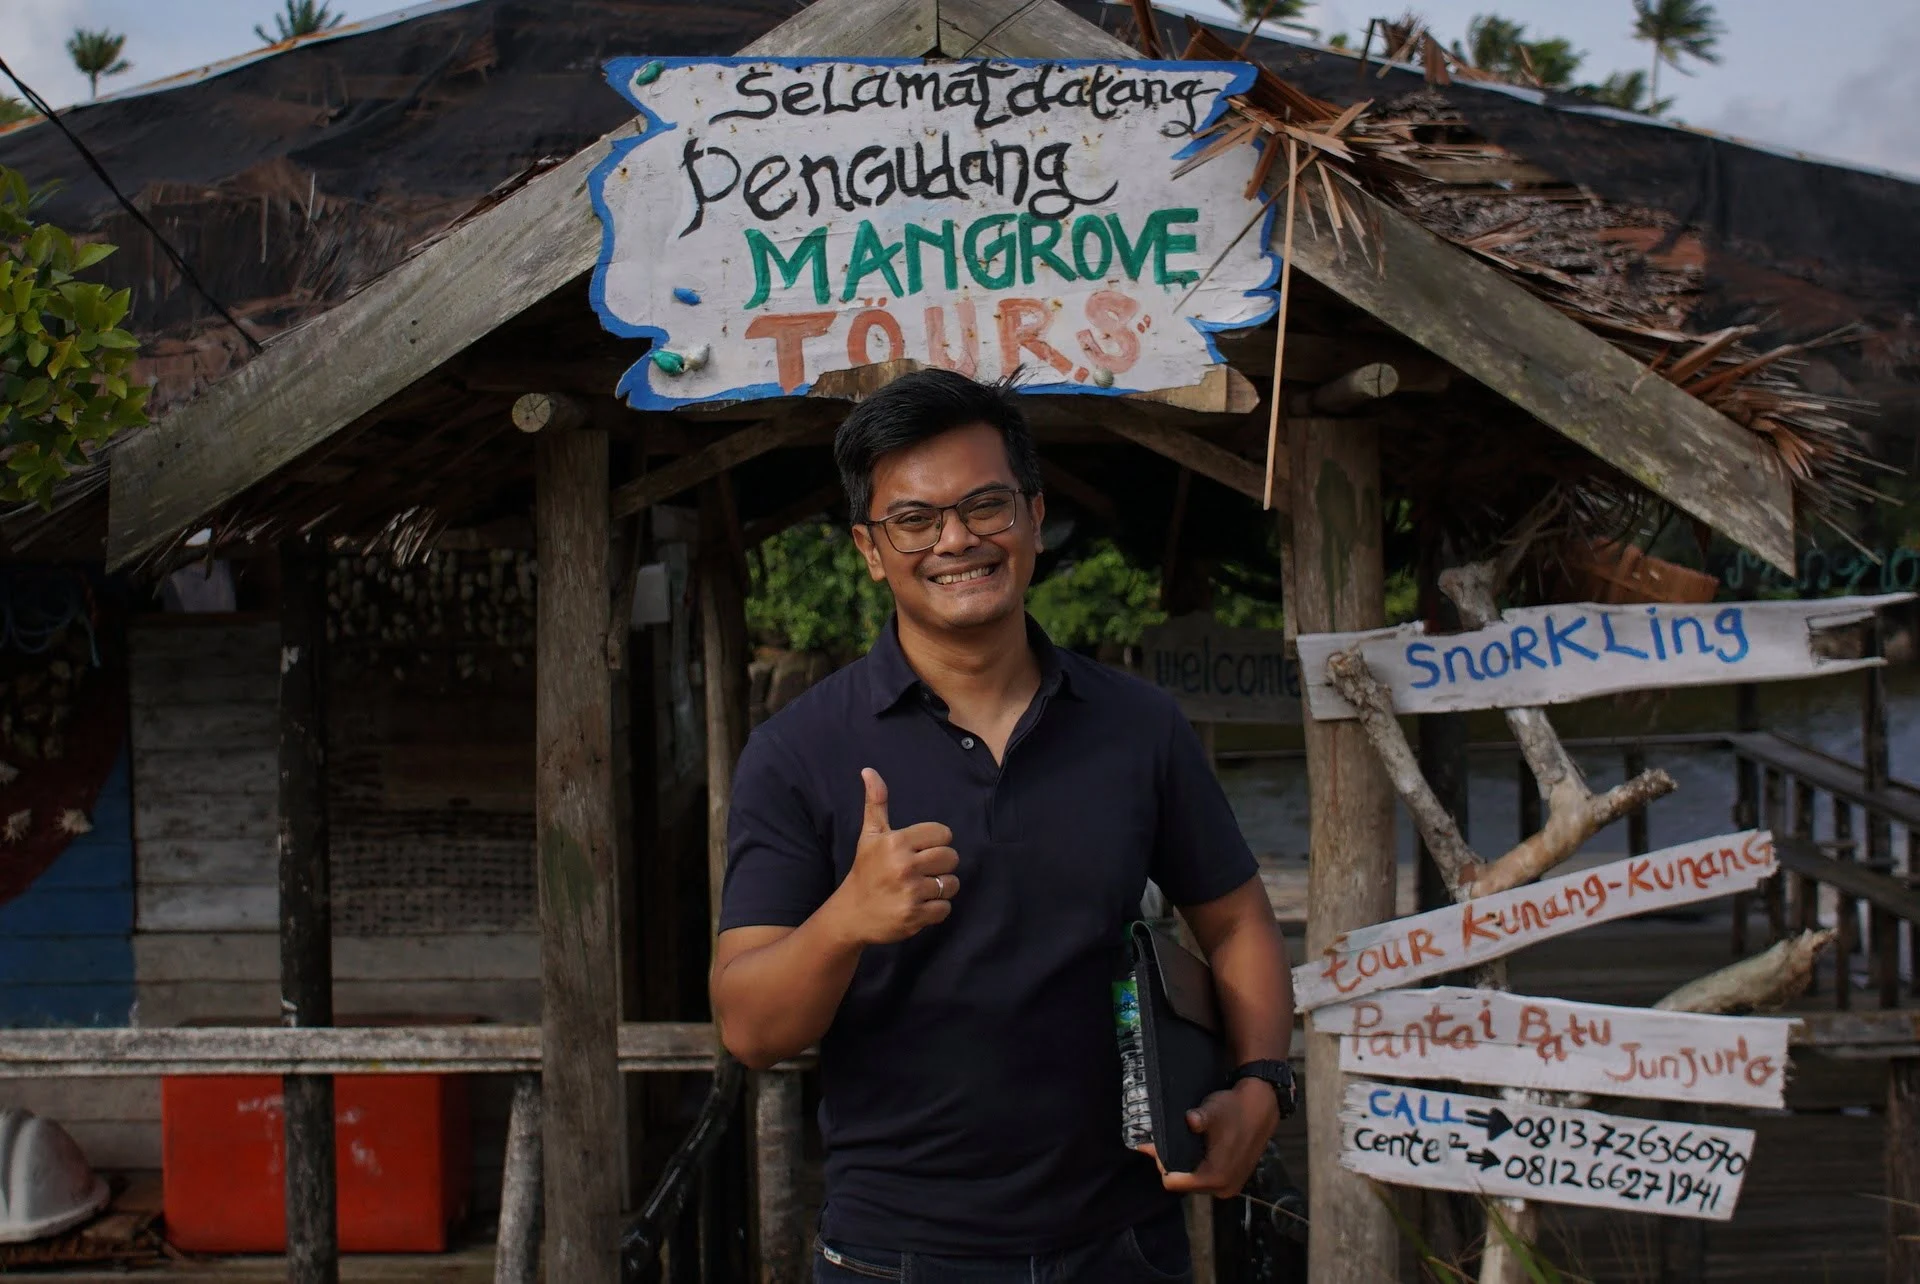 Selamat datang
Pengudang
MANGROVE
TOURS
welcome
SNORKLing
tour Kunang-KunanG
Pantai Batu Junjung
CALL ⇒ 081372636070
cente² ⇒ 081266271941